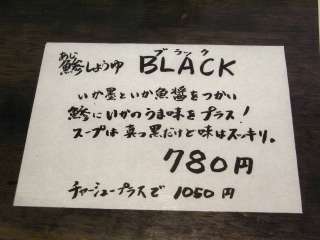 あじ ブラック
鯵しょうゆ BLACK
いか墨といか魚醤をつかい
鯵にいかのうま味をプラス!
スープは真っ黒だけど味はスッキリ。
780円
チャーシュープラスで 1050円